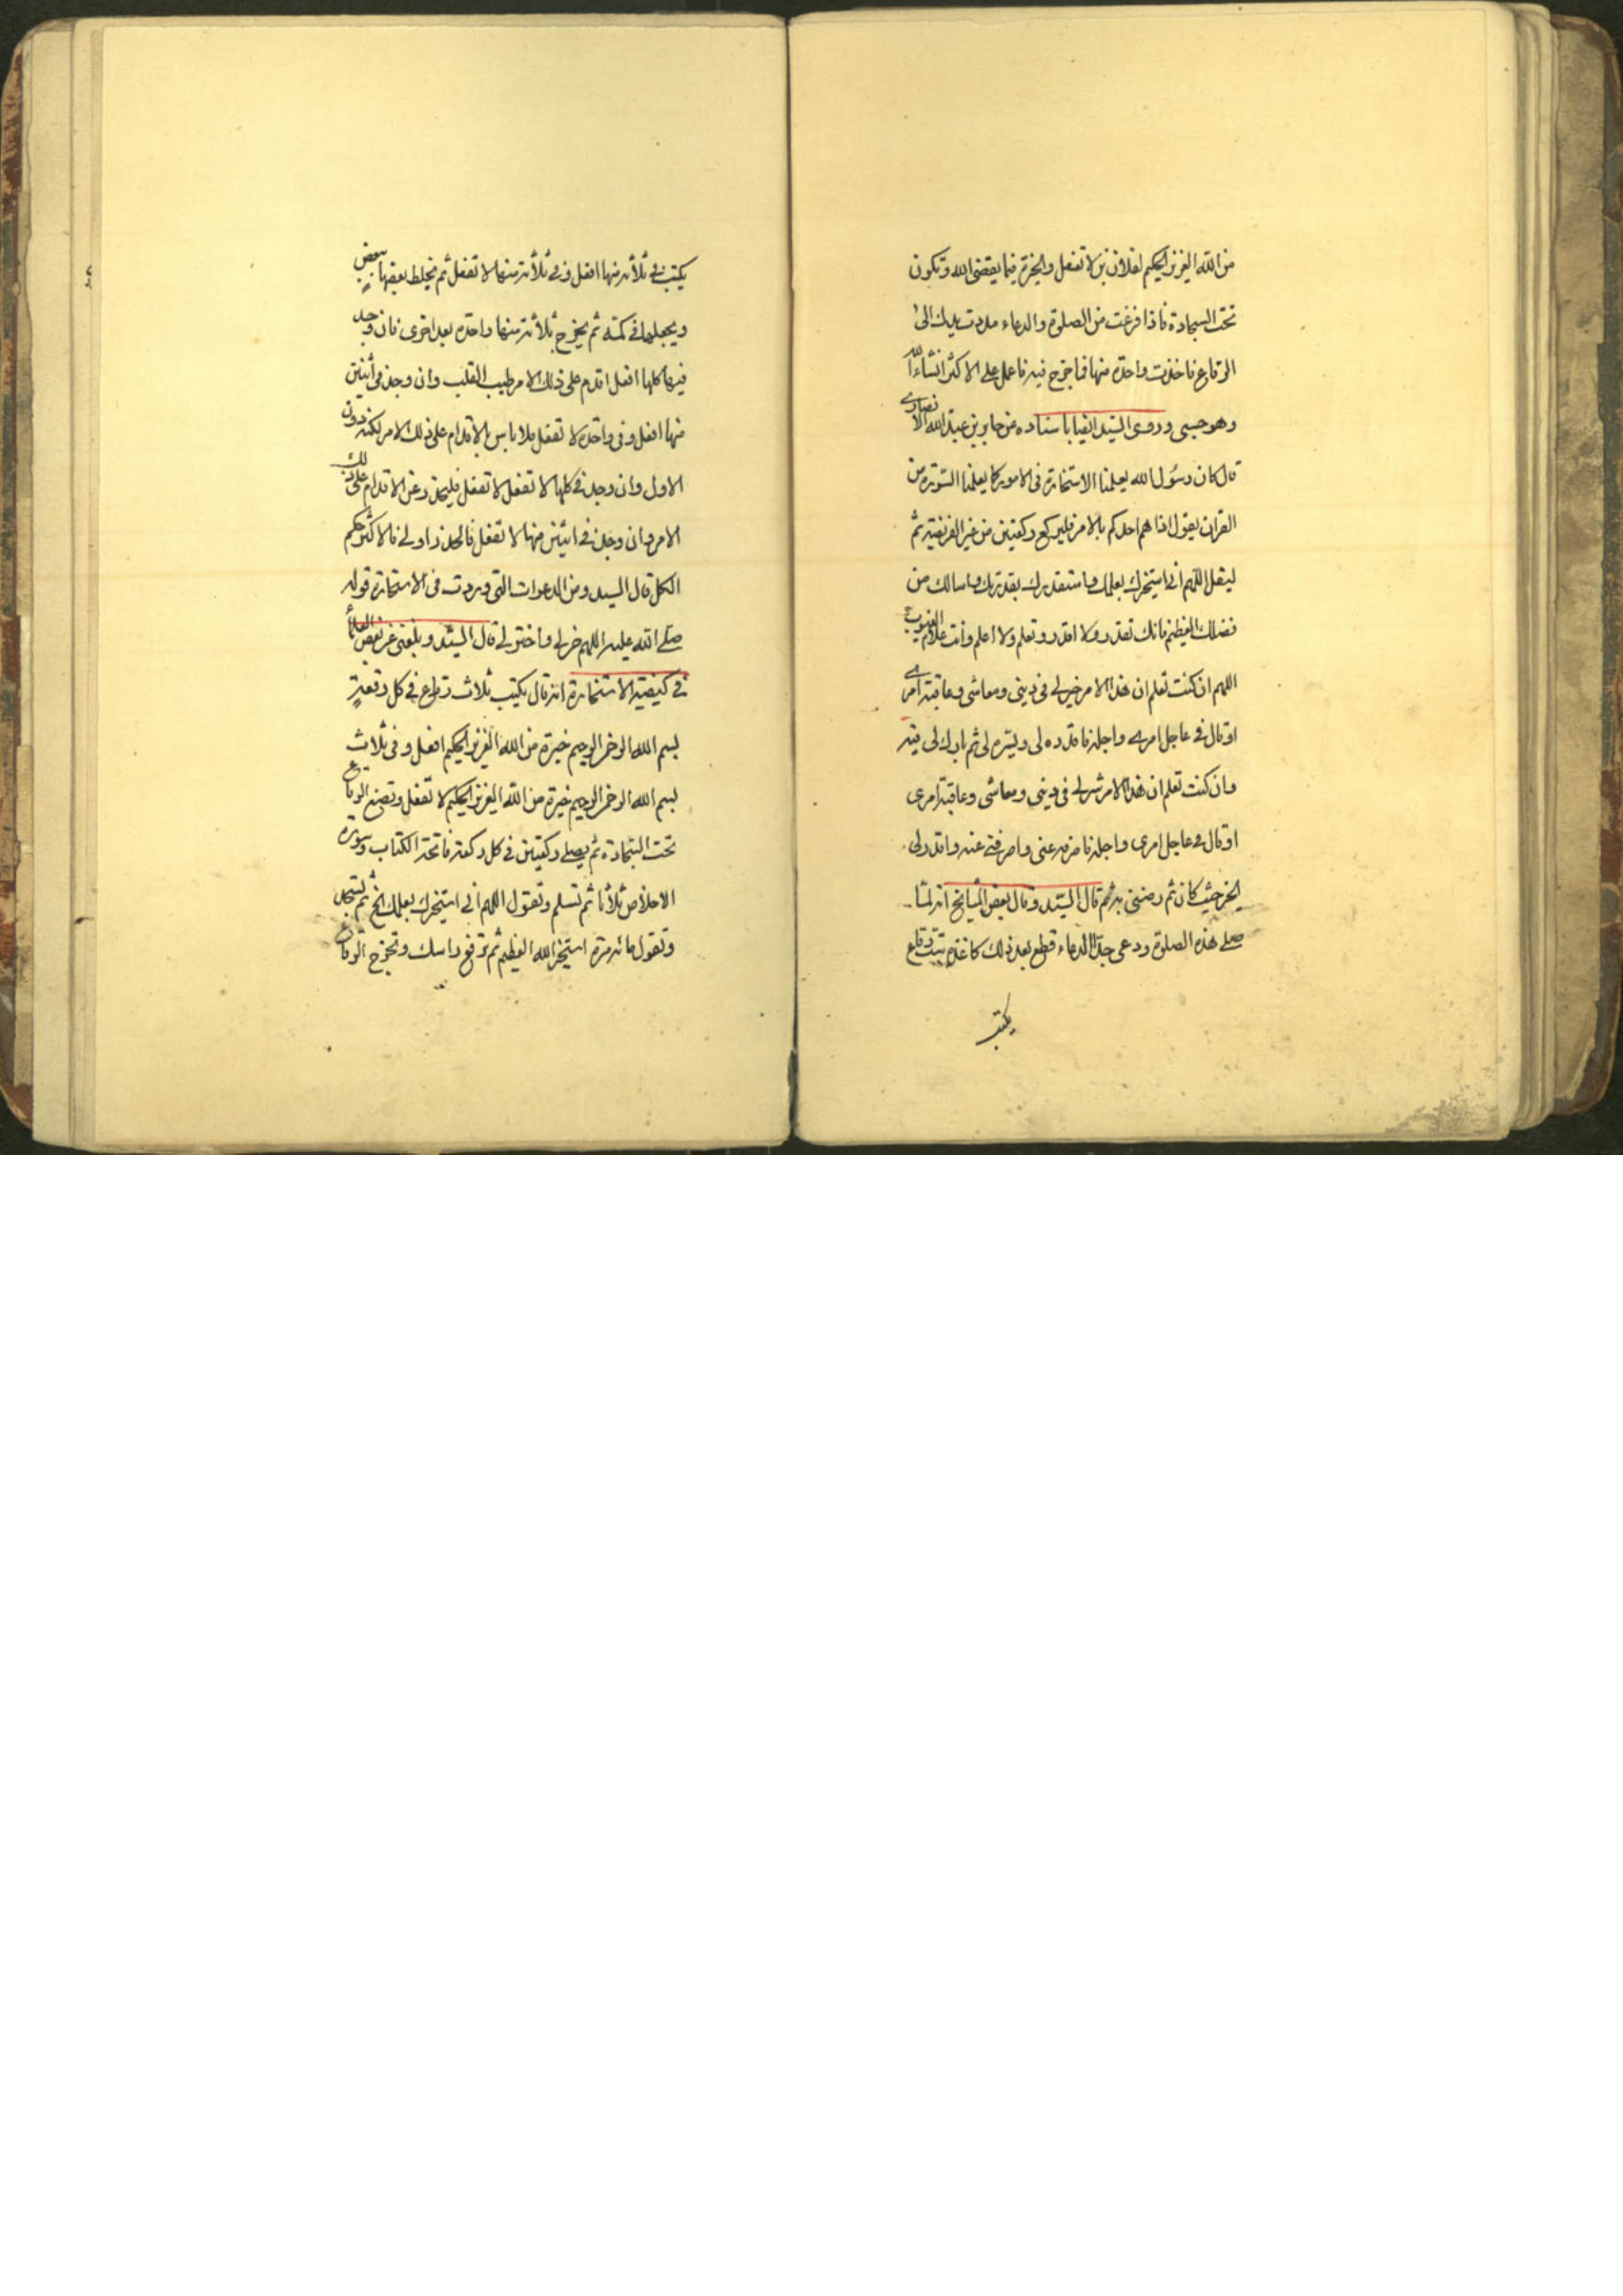 من الله العزيز الحكيم لفلان بن لا تفعل والخيرة فيما يقضى الله وتكون
تحت السجادة فاذا فرغت من الصلوة والدعاء مددت يدك الى
الرقاع فاخذت واحدة منها فما خرج فيه فاعمل على الاكثر انشاء الله
وهو حسبى وروى السيد ايضا باسناده عن جابر بن عبد الله الانصارى
قال كان رسول الله يعلمنا الاستخارة فى الامور كما يعلمنا السورة من
القران يقول اذا هم احدكم بالامر فليركع ركعتين من غير الفريضة ثم
ليقل اللهم انى استخيرك بعلمك واستقدرك بقدرتك واسالك من
فضلك العظيم فانك تقدر ولا اقدر وتعلم ولا اعلم وانت علام الغيوب
اللهم ان كنت تعلم ان هذا الامر خير لى فى دينى ومعاشى وعاقبة امرى
او قال فى عاجل امرى واجله فاقدره لى ويسره لى ثم بارك لى فيه
وان كنت تعلم ان هذا الامر شر لى فى دينى ومعاشى وعاقبة امرى
او قال فى عاجل امرى واجله فاصرفه عنى واصرفنى عنه واقدر لى
الخير حيث كان ثم رضنى به ثم قال السيد وقال بعض المشايخ انه لما
صلى هذه الصلوة ودعى بهذا الدعاء قطع بعد ذلك كاغذة ست رقاع
يكتب
يكتب فى ثلاثه منها افعل وفى ثلاثة منها لا تفعل ثم يخلط بعضها ببعض
ويجعلها فى كمه ثم يخرج ثلاثة منها واحدة بعد اخرى فان وجد
فيها كلها افعل اقدم على ذلك الامر طيب القلب وان وجد فى اثنين
منها افعل وفى واحدة لا تفعل فلا باس بالاقدام على ذلك الامر لكنه دون
الاول وان وجد فى كلها لا تفعل لا تفعل فليحذر عن الاقدام على ذلك
الامر وان وجد فى اثنين منها لا تفعل فالحذر اولى فالاكثر حكم
الكل قال السيد ومن الدعوات التى وردت فى الاستخارة قوله
صلى الله عليه اللهم خر لى واختر لى قال السيد وبلغنى عن بعض العلماء
فى كيفية الاستخارة انه قال يكتب ثلاث رقاع فى كل رقعة
بسم الله الرحمن الرحيم خيرة من الله العزيز الحكيم افعل وفى ثلاث
بسم الله الرحمن الرحيم خيرة من الله العزيز الحكيم لا تفعل وتضع الرقاع
تحت السجادة ثم يصلى ركعتين فى كل ركعة فاتحة الكتاب وسورة
الاخلاص ثلاثا ثم تسلم وتقول اللهم انى استخيرك بعلمك الخ ثم تسجد
وتقول مائه مرة استخير الله العظيم ثم ترفع راسك وتخرج الرقاع